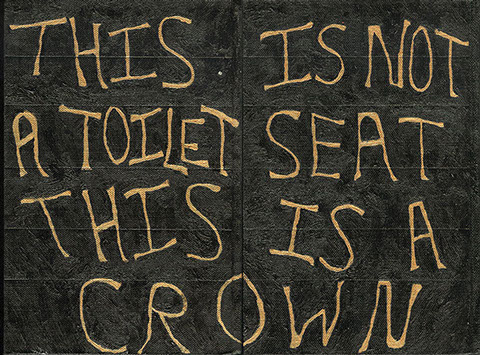 THIS IS NOT
A TOILET SEAT
THIS IS A
CROWN